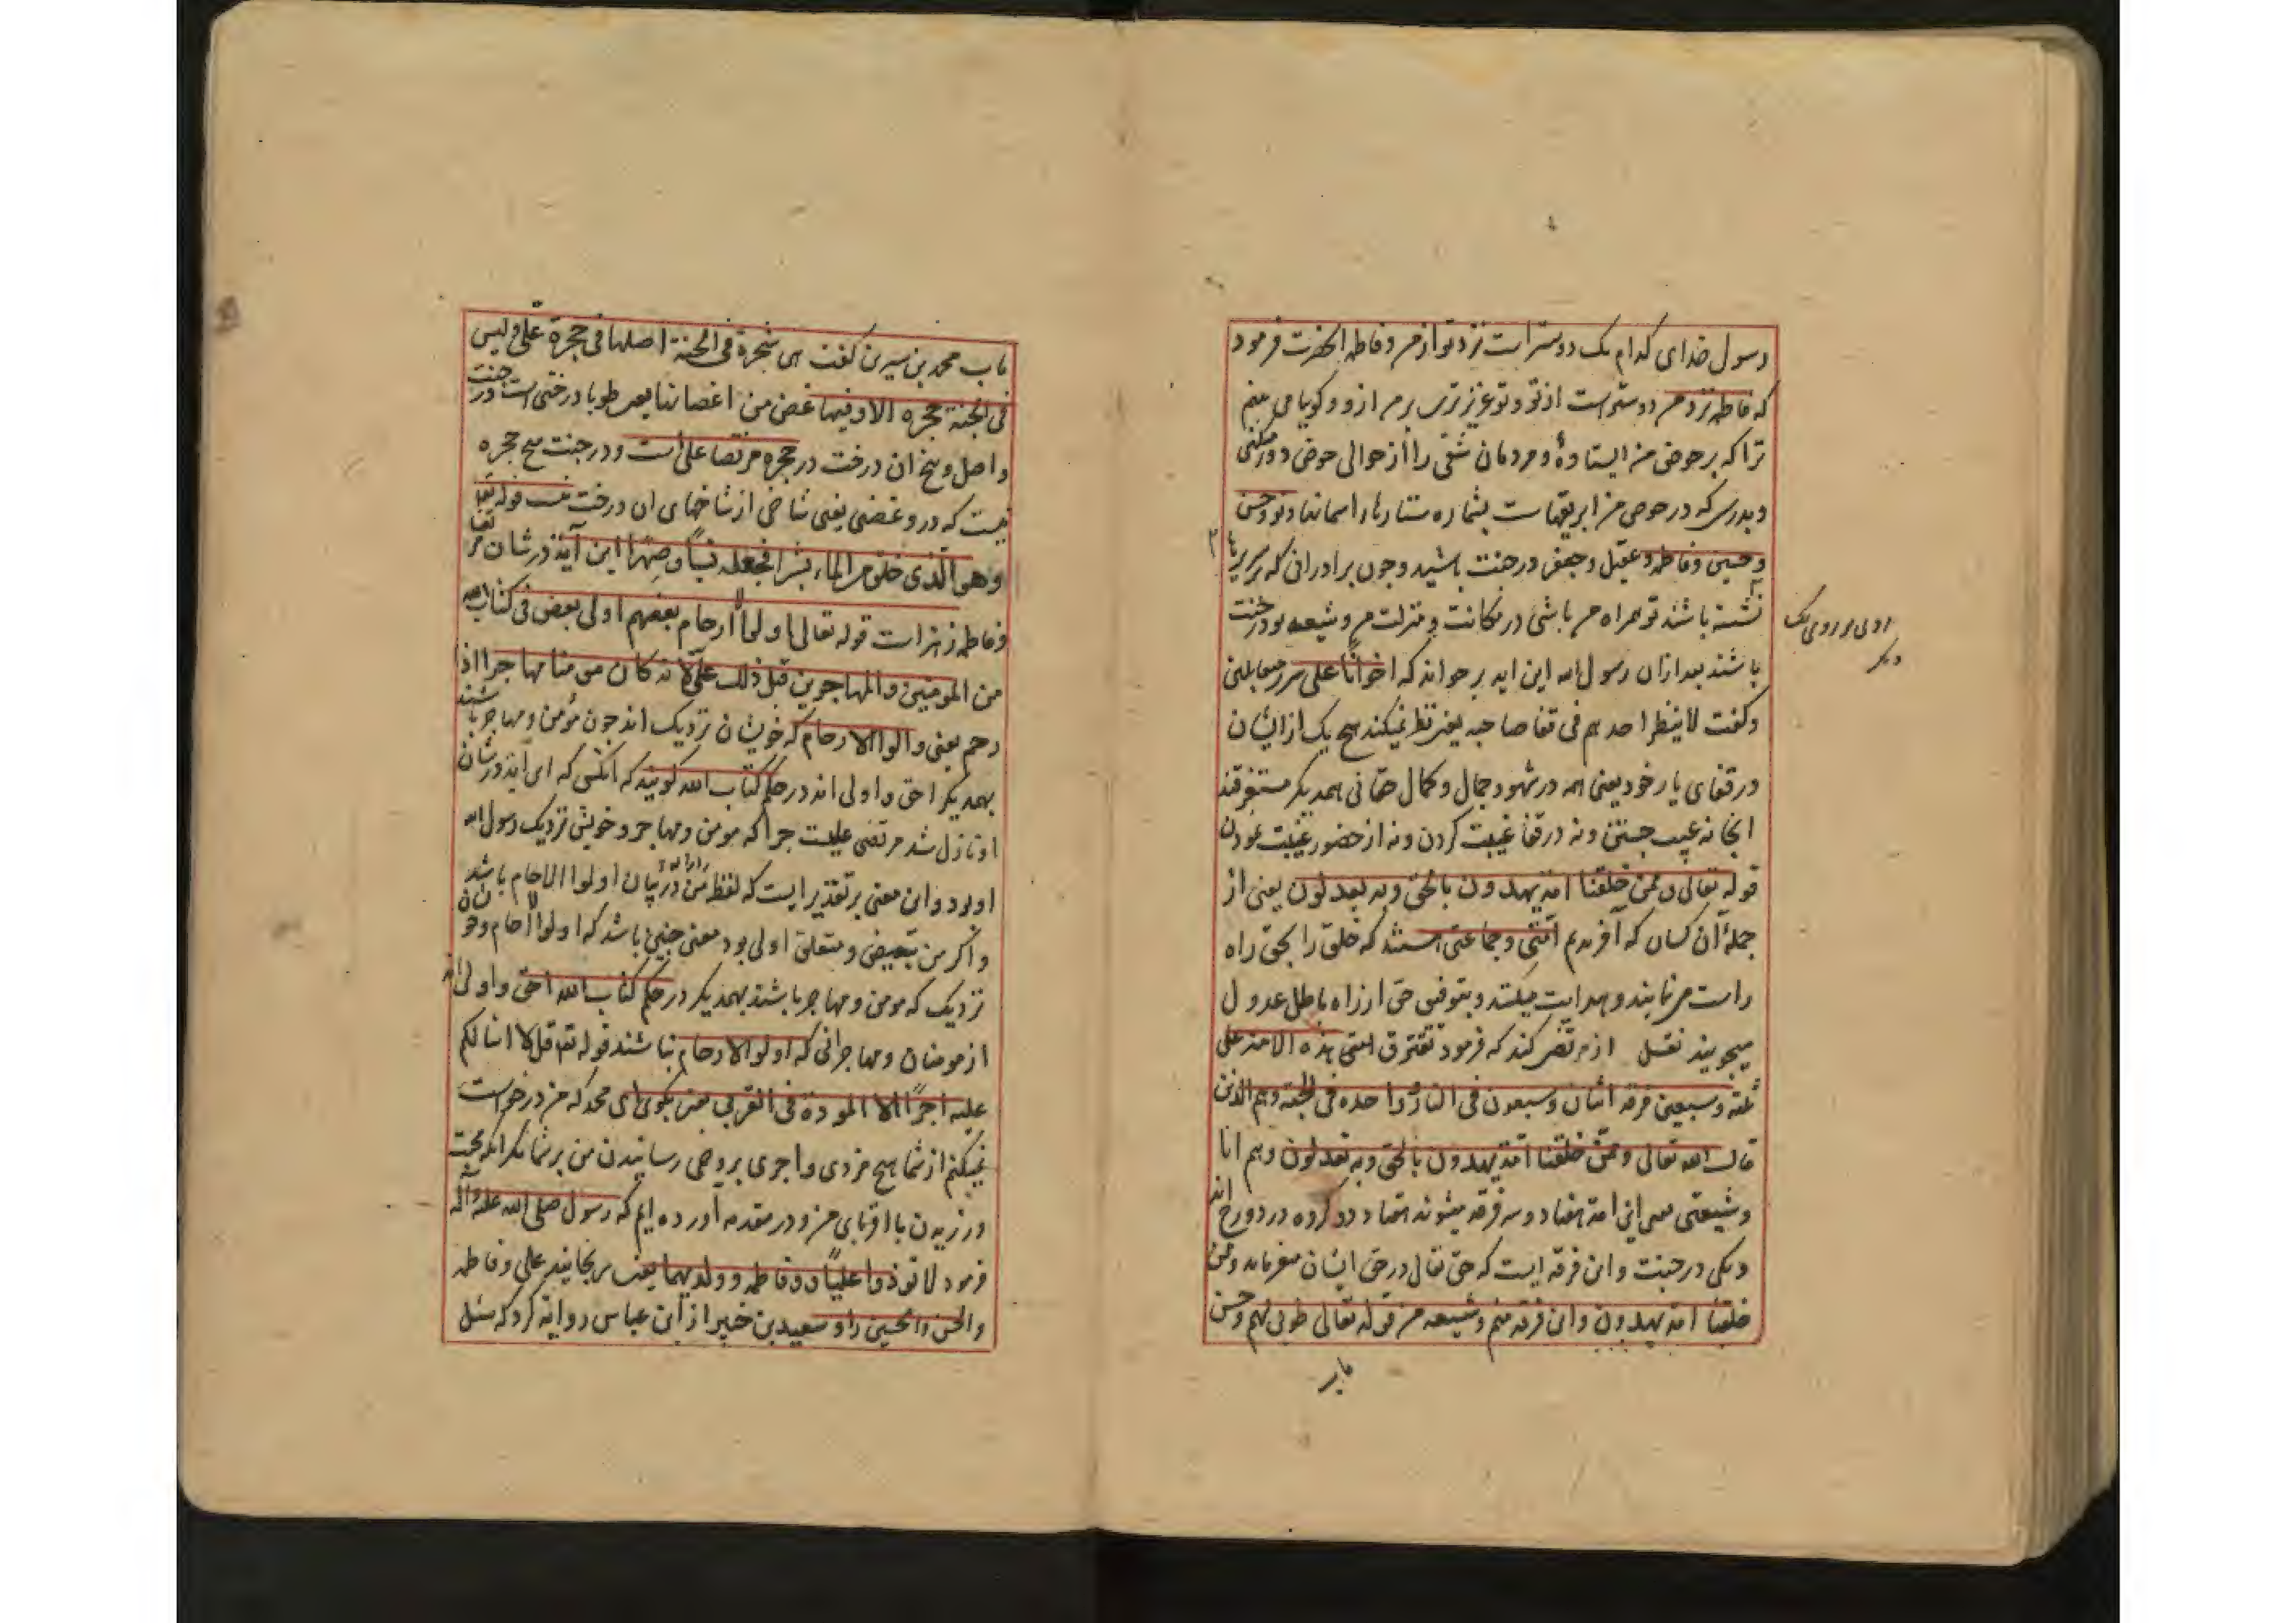 رسول خدای کدام یک دوستر است نزد تو از من و فاطمه انحضرت فرمود
که فاطمه نزد من دوستر است از تو و تو عزیزتری بر من ازو و کویا می بینم
ترا که بر حوض من ایستادهٔ و مردمان شقی را از حوالی حوض دور میکنی
و بدرستی که در حوض من ابریقهاست بشماره ستارهاء اسمانها و تو و حسن
و حسین و فاطمه و عقیل و جعفر در جنت باشید و چون برادرانی که بر سریرها
نشسته باشند تو همراه من باشی در مکانت و منزلت من و شیعه تو در جنت
روی بر روی یک
دیکر
باشند بعد ازان رسول الله این ایه بر خواند که اخوانا علی سرر متقابلین
و کفت لا ینظر احدهم فی قفا صاحبه یعنی نظر نمیکند هیچ یک از ایشان
در قفای یار خود یعنی همه در شهود جمال و کمال حقانی همدیکر مستغرقند
انجا نه عیب جستن و نه در قفا غیبت کردن و نه از حضور غیبت نمودن
قوله تعالی و ممن خلقنا امة یهدون بالحق و به یعدلون یعنی از
جملهٔ آن کسان که آفریدیم امتی و جماعتی هستند که خلق را بحق راه
راست می نمایند و هدایت میکنند و بتوفیق حق از راه باطل عدول
میجویند نقل از مرتضی کند که فرمود تفترق امتی هذه الامة علی
ثلثه و سبعین فرقه اثنان و سبعون فی النار و واحده فی الجنة و هم الذین
قال الله تعالی و ممن خلقنا امة یهدون بالحق و به یعدلون و هم انا
و شیعتی یعنی این امة هفتاد و سه فرقه میشوند هفتاد و دو کروه در دوزخ اند
و یکی در جنت و این فرقه ایست که حق تعالی در حق ایشان میفرماید و ممن
خلقنا امة یهدون و این فرقه منم و شیعه من قوله تعالی طوبی لهم و حسن
ماب
ماب محمد بن سیرین کفت هی شجرة فی الجنة اصلها فی حجرة علی و لیس
فی الجنة حجره الا و فیها غصن من اغصانها یعنی طوبا درختی است در جنت
و اصل و بیخ ان درخت در حجره مرتضا علی است و در جنت هیچ حجره
نیست که درو غصنی یعنی شاخی از شاخهای ان درخت نیست قوله تعا
و هو الذی خلق من الماء بشرا فجعله نسبا و صهرا این آیة در شان مرتضا
و فاطمه زهرا است قوله تعالی و اولوا الارحام بعضهم اولی ببعض فی کتاب الله
من المومنین و المهاجرین قیل ذلک علی لانه کان مومنا مهاجرا ذا
رحم یعنی و اولوا الارحام که خویشان نزدیک اند چون مؤمن و مهاجر باشند
بهمدیکر احق و اولی اند در حکم کتاب الله کویند که انکسی که این آیة در شان
او نازل شد مرتضی علیست چرا که مومن و مهاجر و خویش نزدیک رسول الله
او بود و این معنی بر تقدیر ایست که لفظ من در بیان اولوا الارحام باشد
و اکر من تبعیض و متعلق اولی بود معنی چنین باشد که اولوا الارحام و خویشان
نزدیک که مومن و مهاجر باشند بهمدیکر در حکم کتاب الله احق و اولی اند
از مومنان و مهاجرانی که اولوا الارحام نباشند قوله تعا قل لا اسالکم
علیه اجرا الا المودة فی القربی یعنی بکوی ای محمد که من درخواست
نمیکنم از شما هیچ مزدی و اجری بر وحی رسانیدن من بر شما مکر انکه محبت
ورزیدن با اقربای من و در مقدمه آورده ایم که رسول صلی الله علیه و آله
فرمود لا توذوا علیا و فاطمه و ولدیهما یعنی مرنجانید علی و فاطمه
و الحسن و الحسین را و سعید بن جبیر از ابن عباس روایة کرد که سئل